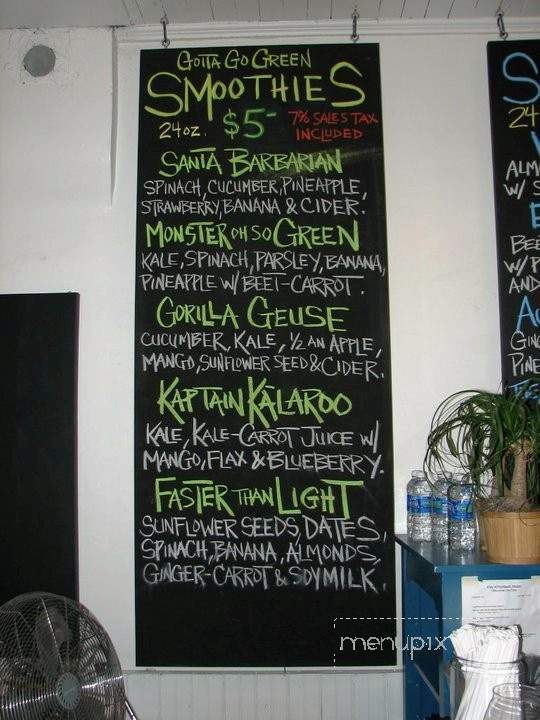 GOTTA GO GREEN
SMOOTHIES
24oz. $5- 7% SALES TAX
INCLUDED
SANTA BARBARIAN
SPINACH, CUCUMBER, PINEAPPLE,
STRAWBERRY, BANANA & CIDER.
MONSTER OH SO GREEN
KALE, SPINACH, PARSLEY, BANANA,
PINEAPPLE W/ BEET-CARROT.
GORILLA GEUSE
CUCUMBER, KALE, 1/2 AN APPLE,
MANGO, SUNFLOWER SEED & CIDER.
KAPTAIN KALAROO
KALE, KALE-CARROT JUICE W/
MANGO, FLAX & BLUEBERRY.
FASTER THAN LIGHT
SUNFLOWER SEEDS, DATES,
SPINACH, BANANA, ALMONDS,
GINGER-CARROT & SOYMILK.
S
24
ALM
W/ S
BEE
W/ P
AND
A
GING
PINE
menupix